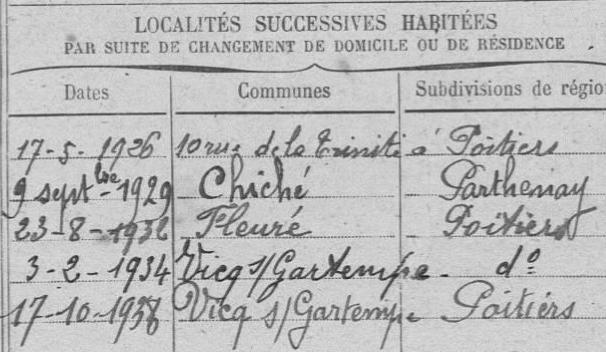 LOCALITÉS SUCCESSIVES HABITÉES
PAR SUITE DE CHANGEMENT DE DOMICILE OU DE RÉSIDENCE
Dates Communes Subdivisions de régio
17-5-1926 10 rue de la Trinité à Poitiers
9 septbre 1929 Chiché Parthenay
23-8-1932 Fleuré Poitiers
3-2-1934 Vicq s/Gartempe d°
17-10-1938 Vicq s/Gartempe Poitiers